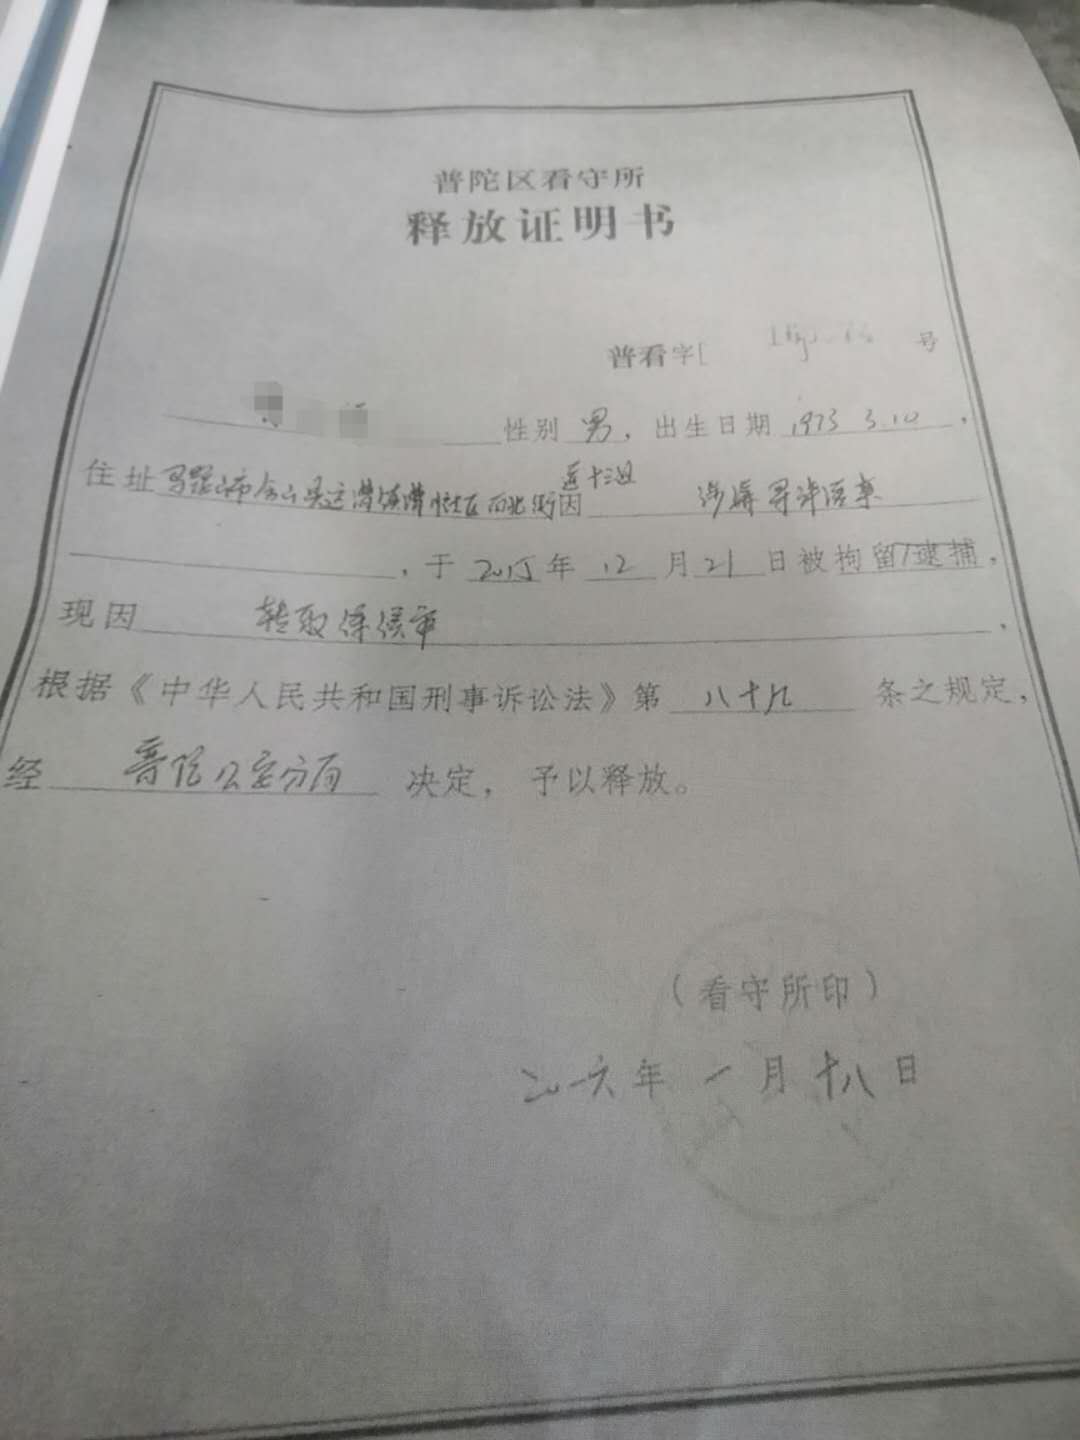 普陀区看守所
释放证明书
普看字[ 号
性别 男，出生日期 1973 3.10 .
住址 马鞍山市含山县运漕镇漕 社区西北街 因 涉嫌寻衅滋事
，于 2015 年 12 月 21 日被拘留/逮捕，
现因 转取保候审 .
根据《中华人民共和国刑事诉讼法》第 八十九 条之规定，
经 普陀公安分局 决定，予以释放。
（看守所印）
二〇一六年 一 月 十八 日